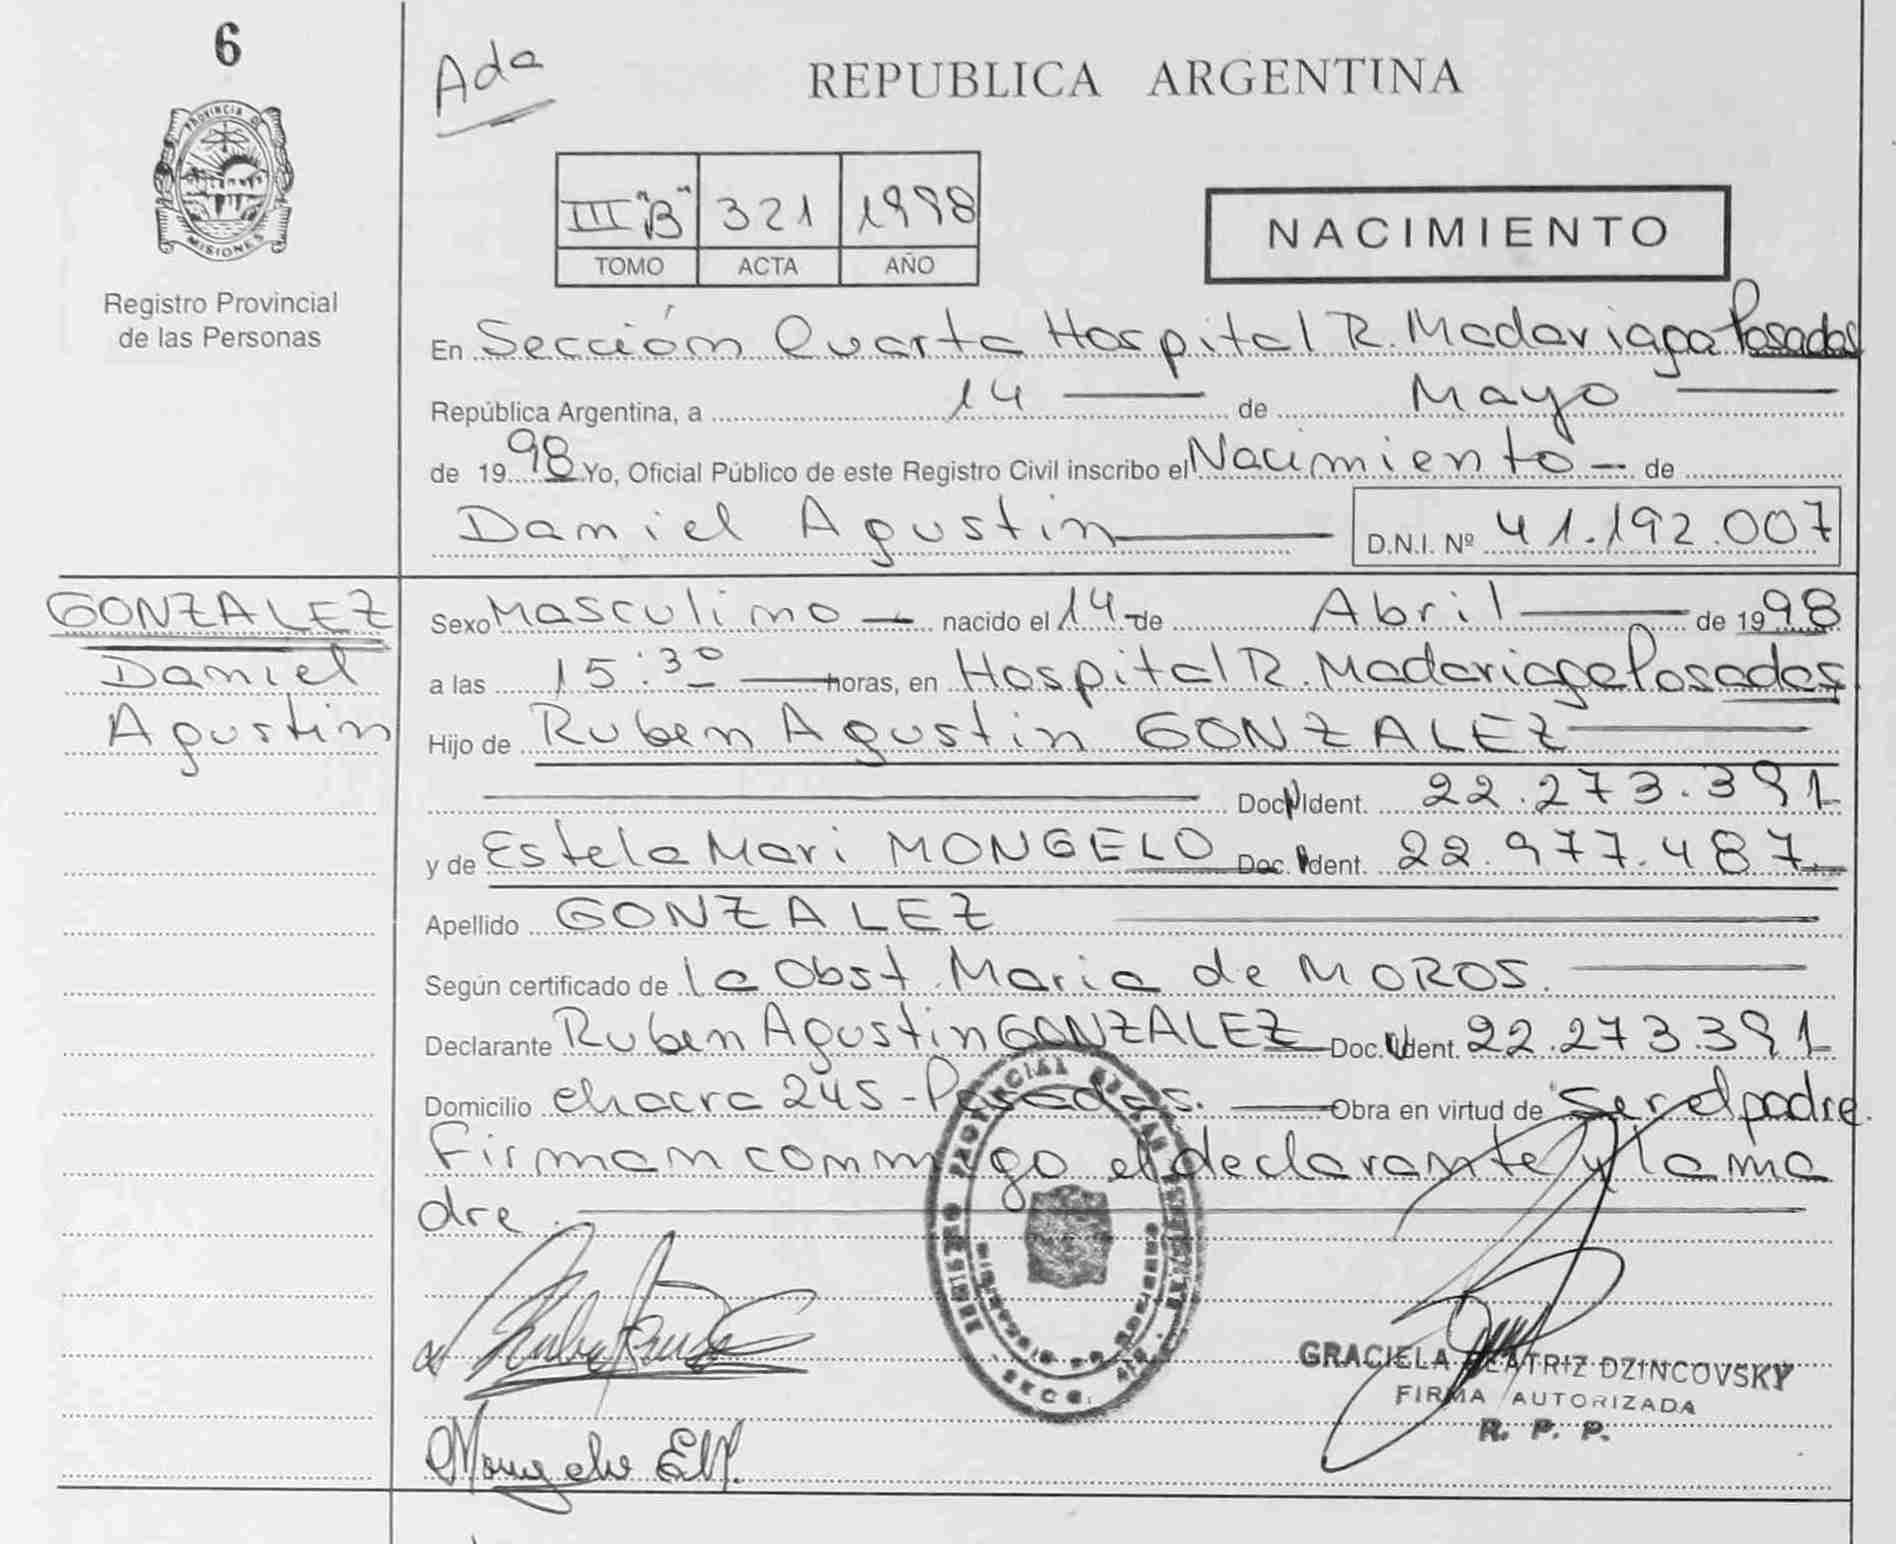 6
PROVINCIA DE
MISIONES
Registro Provincial
de las Personas
Ada
REPUBLICA ARGENTINA
III "B" 321 1998
TOMO ACTA AÑO
NACIMIENTO
En Sección Cuarta Hospital R. Madariaga Posadas
República Argentina, a 14 de Mayo
de 1998 Yo, Oficial Público de este Registro Civil inscribo el Nacimiento de
Daniel Agustin D.N.I. Nº 41.192.007
GONZALEZ
Daniel
Agustin
Sexo Masculino nacido el 14 de Abril de 1998
a las 15:30 horas, en Hospital R. Madariaga Posadas
Hijo de Ruben Agustin GONZALEZ
Doc. Ident. 22.273.391
y de Estela Mari MONGELO Doc. Ident. 22.977.487
Apellido GONZALEZ
Según certificado de la Obst. Maria de MOROS.
Declarante Ruben Agustin GONZALEZ Doc. Ident. 22.273.391
Domicilio chacra 245 - Posadas. Obra en virtud de ser el padre.
Firman conmigo el declarante y la ma
dre.
REGISTRO PROVINCIAL DE LAS PERSONAS
GRACIELA BEATRIZ DZINCOVSKY
FIRMA AUTORIZADA
R. P. P.
Mongelo E.M.